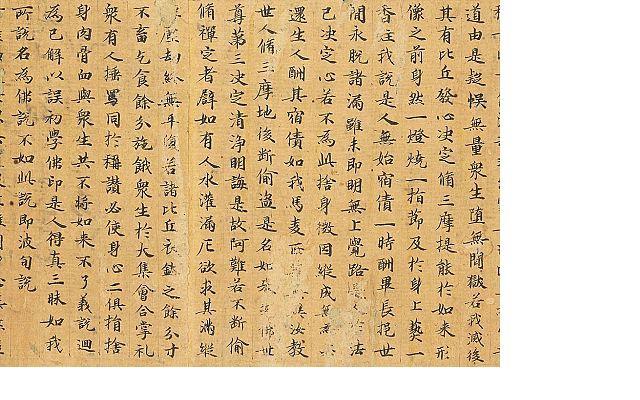 道由是疑悞無量衆生堕無間獄若我滅後
其有比丘發心決定脩三摩提能於如来形
像之前身然一燈燒一指莭及於身上爇一
香炷我說是人無始宿債一時酬畢長挹世
間永脱諸漏雖未即明無上覺路於法
已決定心若不為此捨身微因縱成
還生人酬其宿債如我馬麦汝教
世人脩三摩地後断偷盗是名如世
尊第三決定清浄明誨是故阿難若不断偷
脩禪定者譬如有人水灌漏卮欲求其滿縱
塵劫終無平復若諸比丘衣鉢之餘分寸
不畜乞食餘分施餓衆生於大集會合掌礼
衆有人捶詈同於稱讃必使身心二俱捐捨
身肉骨血與衆生共不將如来不了義說迴
為己解以誤初學佛印是人得真三昧如我
所說名為佛說不如此說即波旬說